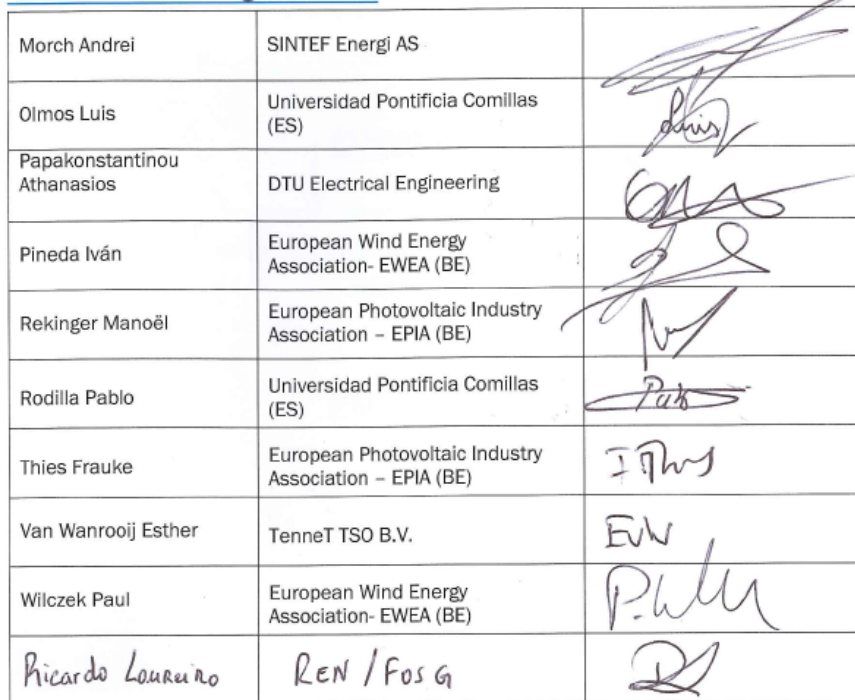 Morch Andrei
SINTEF Energi AS
Olmos Luis
Universidad Pontificia Comillas
(ES)
Luis
Papakonstantinou
Athanasios
DTU Electrical Engineering
Pineda Iván
European Wind Energy
Association- EWEA (BE)
Rekinger Manoël
European Photovoltaic Industry
Association – EPIA (BE)
Rodilla Pablo
Universidad Pontificia Comillas
(ES)
Thies Frauke
European Photovoltaic Industry
Association – EPIA (BE)
Van Wanrooij Esther
TenneT TSO B.V.
EvW
Wilczek Paul
European Wind Energy
Association- EWEA (BE)
Ricardo Loureiro
REN / FOSG